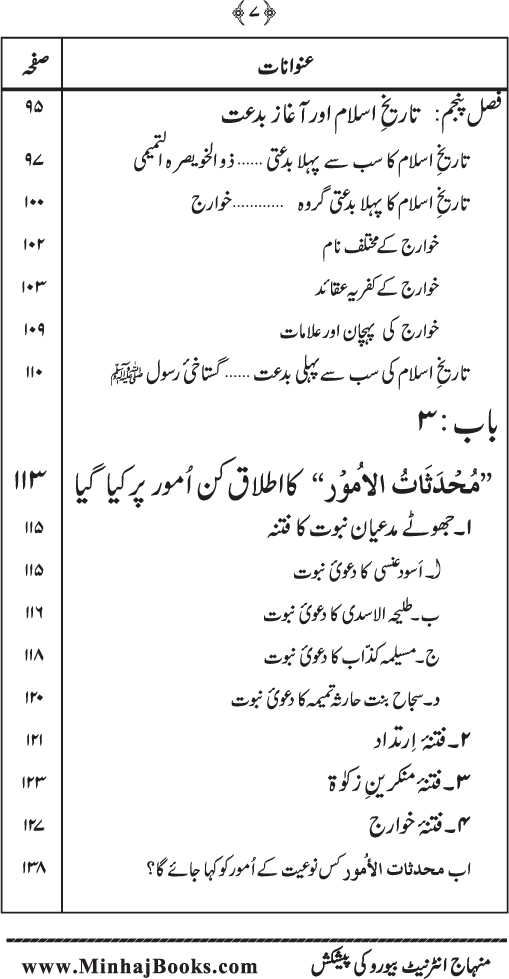 ﴿۷﴾
عنوانات صفحہ
فصل پنجم: تاریخِ اسلام اور آغاز بدعت ۹۵
تاریخِ اسلام کا سب سے پہلا بدعتی ...... ذوالخویصرہ التمیمی ۹۷
تاریخِ اسلام کا پہلا بدعتی گروہ ............ خوارج ۱۰۰
خوارج کے مختلف نام ۱۰۲
خوارج کے کفریہ عقائد ۱۰۳
خوارج کی پہچان اور علامات ۱۰۹
تاریخِ اسلام کی سب سے پہلی بدعت ...... گستاخئ رسول ﷺ ۱۱۰
باب : ۳
”مُحْدَثَاتُ الْاُمُوْر“ کا اطلاق کن اُمور پر کیا گیا ۱۱۳
۱۔ جھوٹے مدعیان نبوت کا فتنہ ۱۱۵
ا۔ اَسود عنسی کا دعویٰ نبوت ۱۱۵
ب۔ طلیحہ الاسدی کا دعویٰ نبوت ۱۱۶
ج۔ مسیلمہ کذّاب کا دعویٰ نبوت ۱۱۸
د۔ سجاح بنت حارثہ تمیمہ کا دعویٰ نبوت ۱۲۰
۲۔ فتنۂ اِرتداد ۱۲۱
۳۔ فتنۂ منکرینِ زکوٰۃ ۱۲۳
۴۔ فتنۂ خوارج ۱۲۷
اب محدثات الأمُور کس نوعیت کے اُمور کو کہا جائے گا؟ ۱۳۸
منہاج انٹرنیٹ بیورو کی پیشکش www.MinhajBooks.com